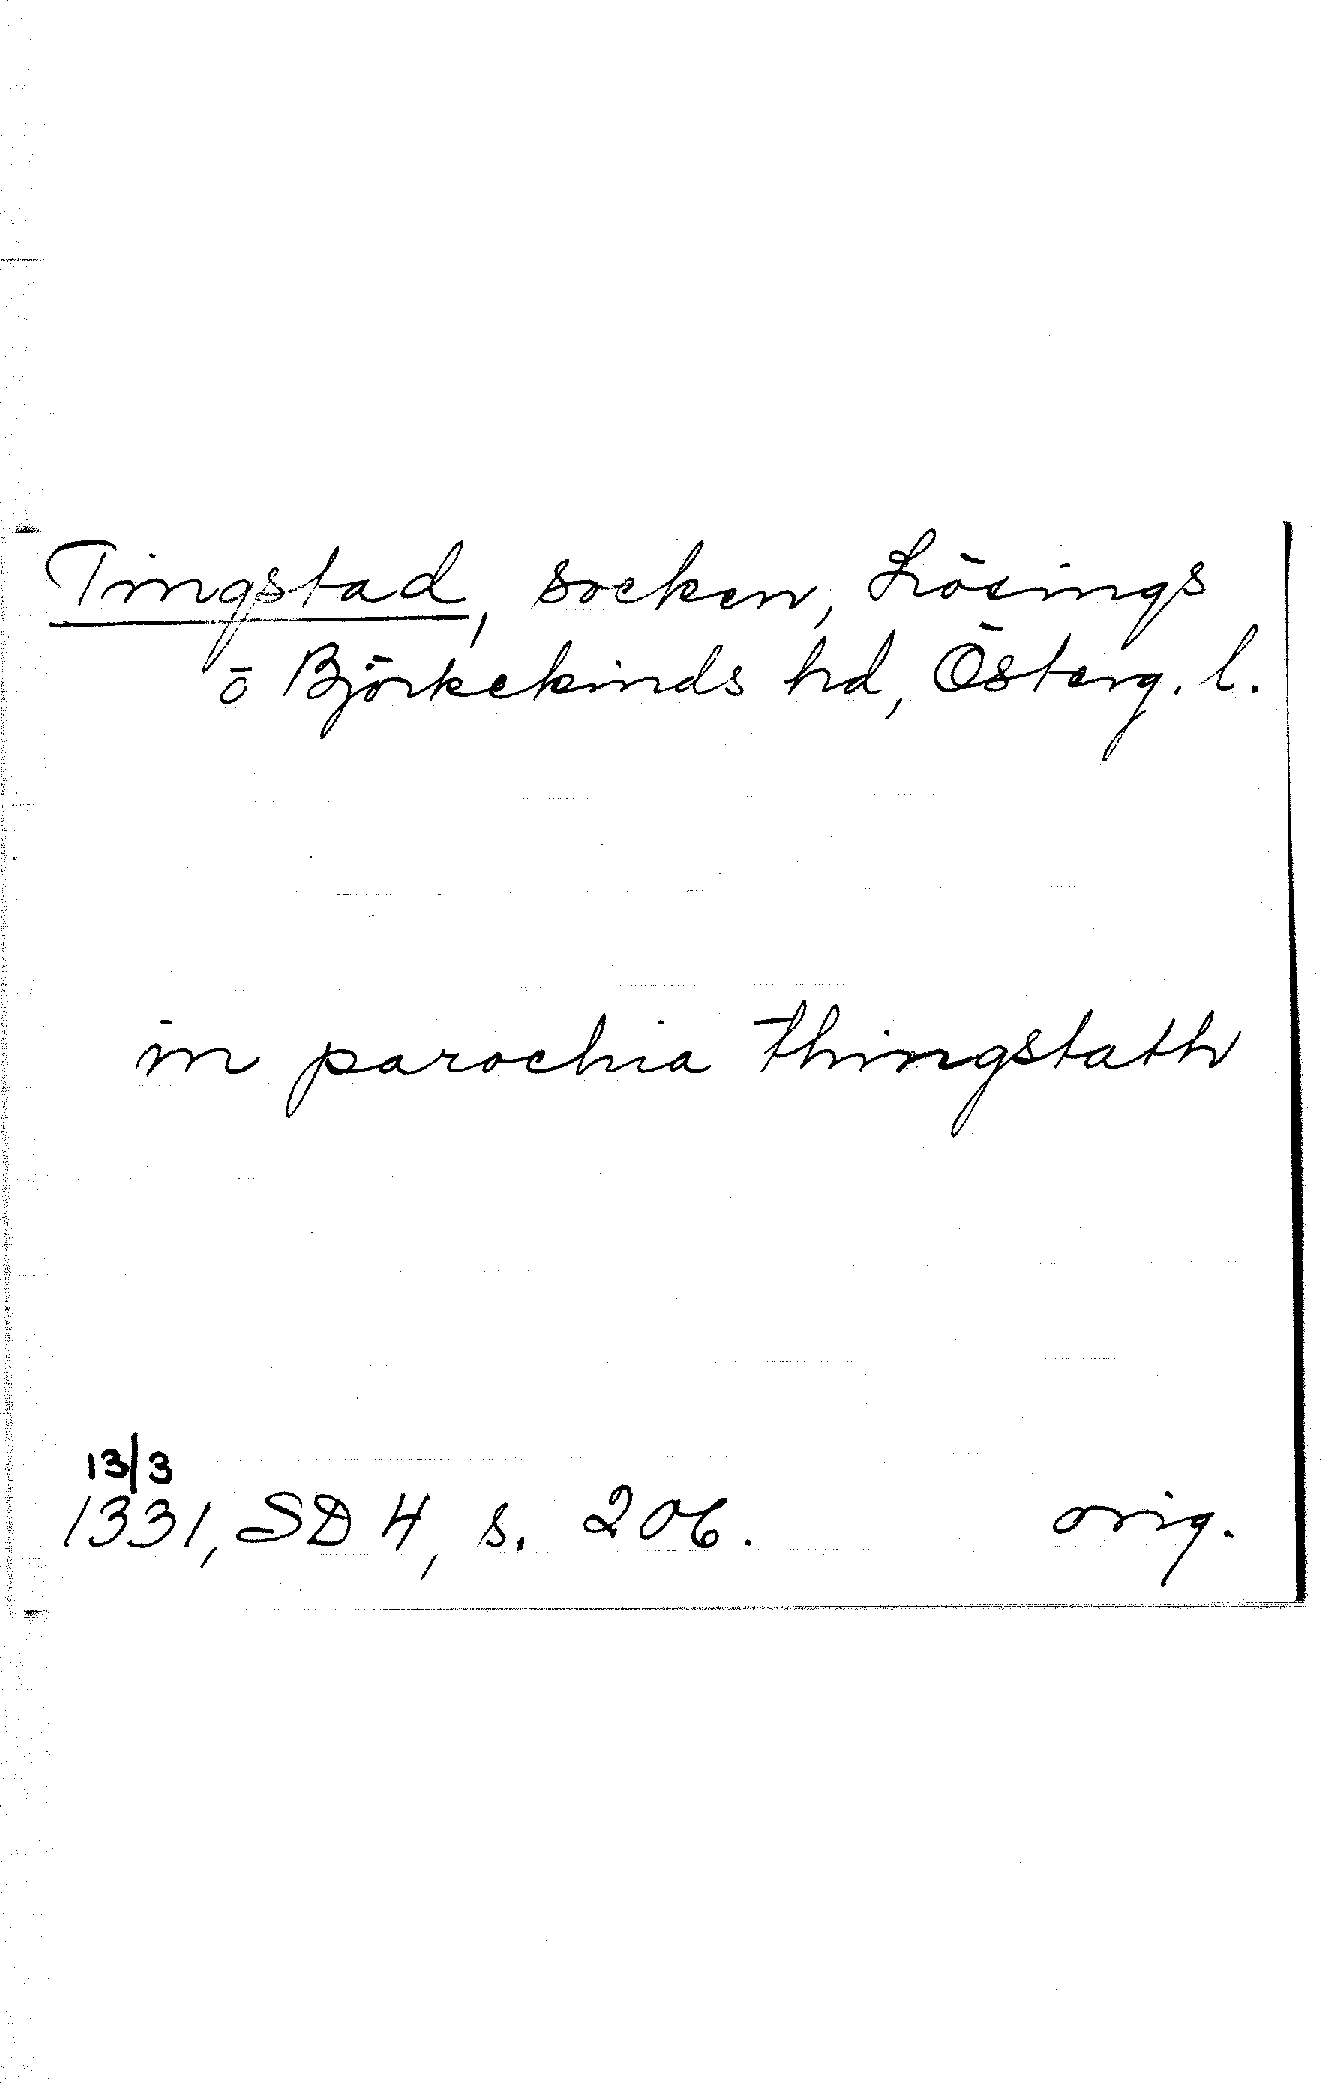 Tingstad, socken, Lösings
o Björkekinds hd, Österg. l.
in parochia thingstath
13/3
1331, SD 4, s. 206. orig.